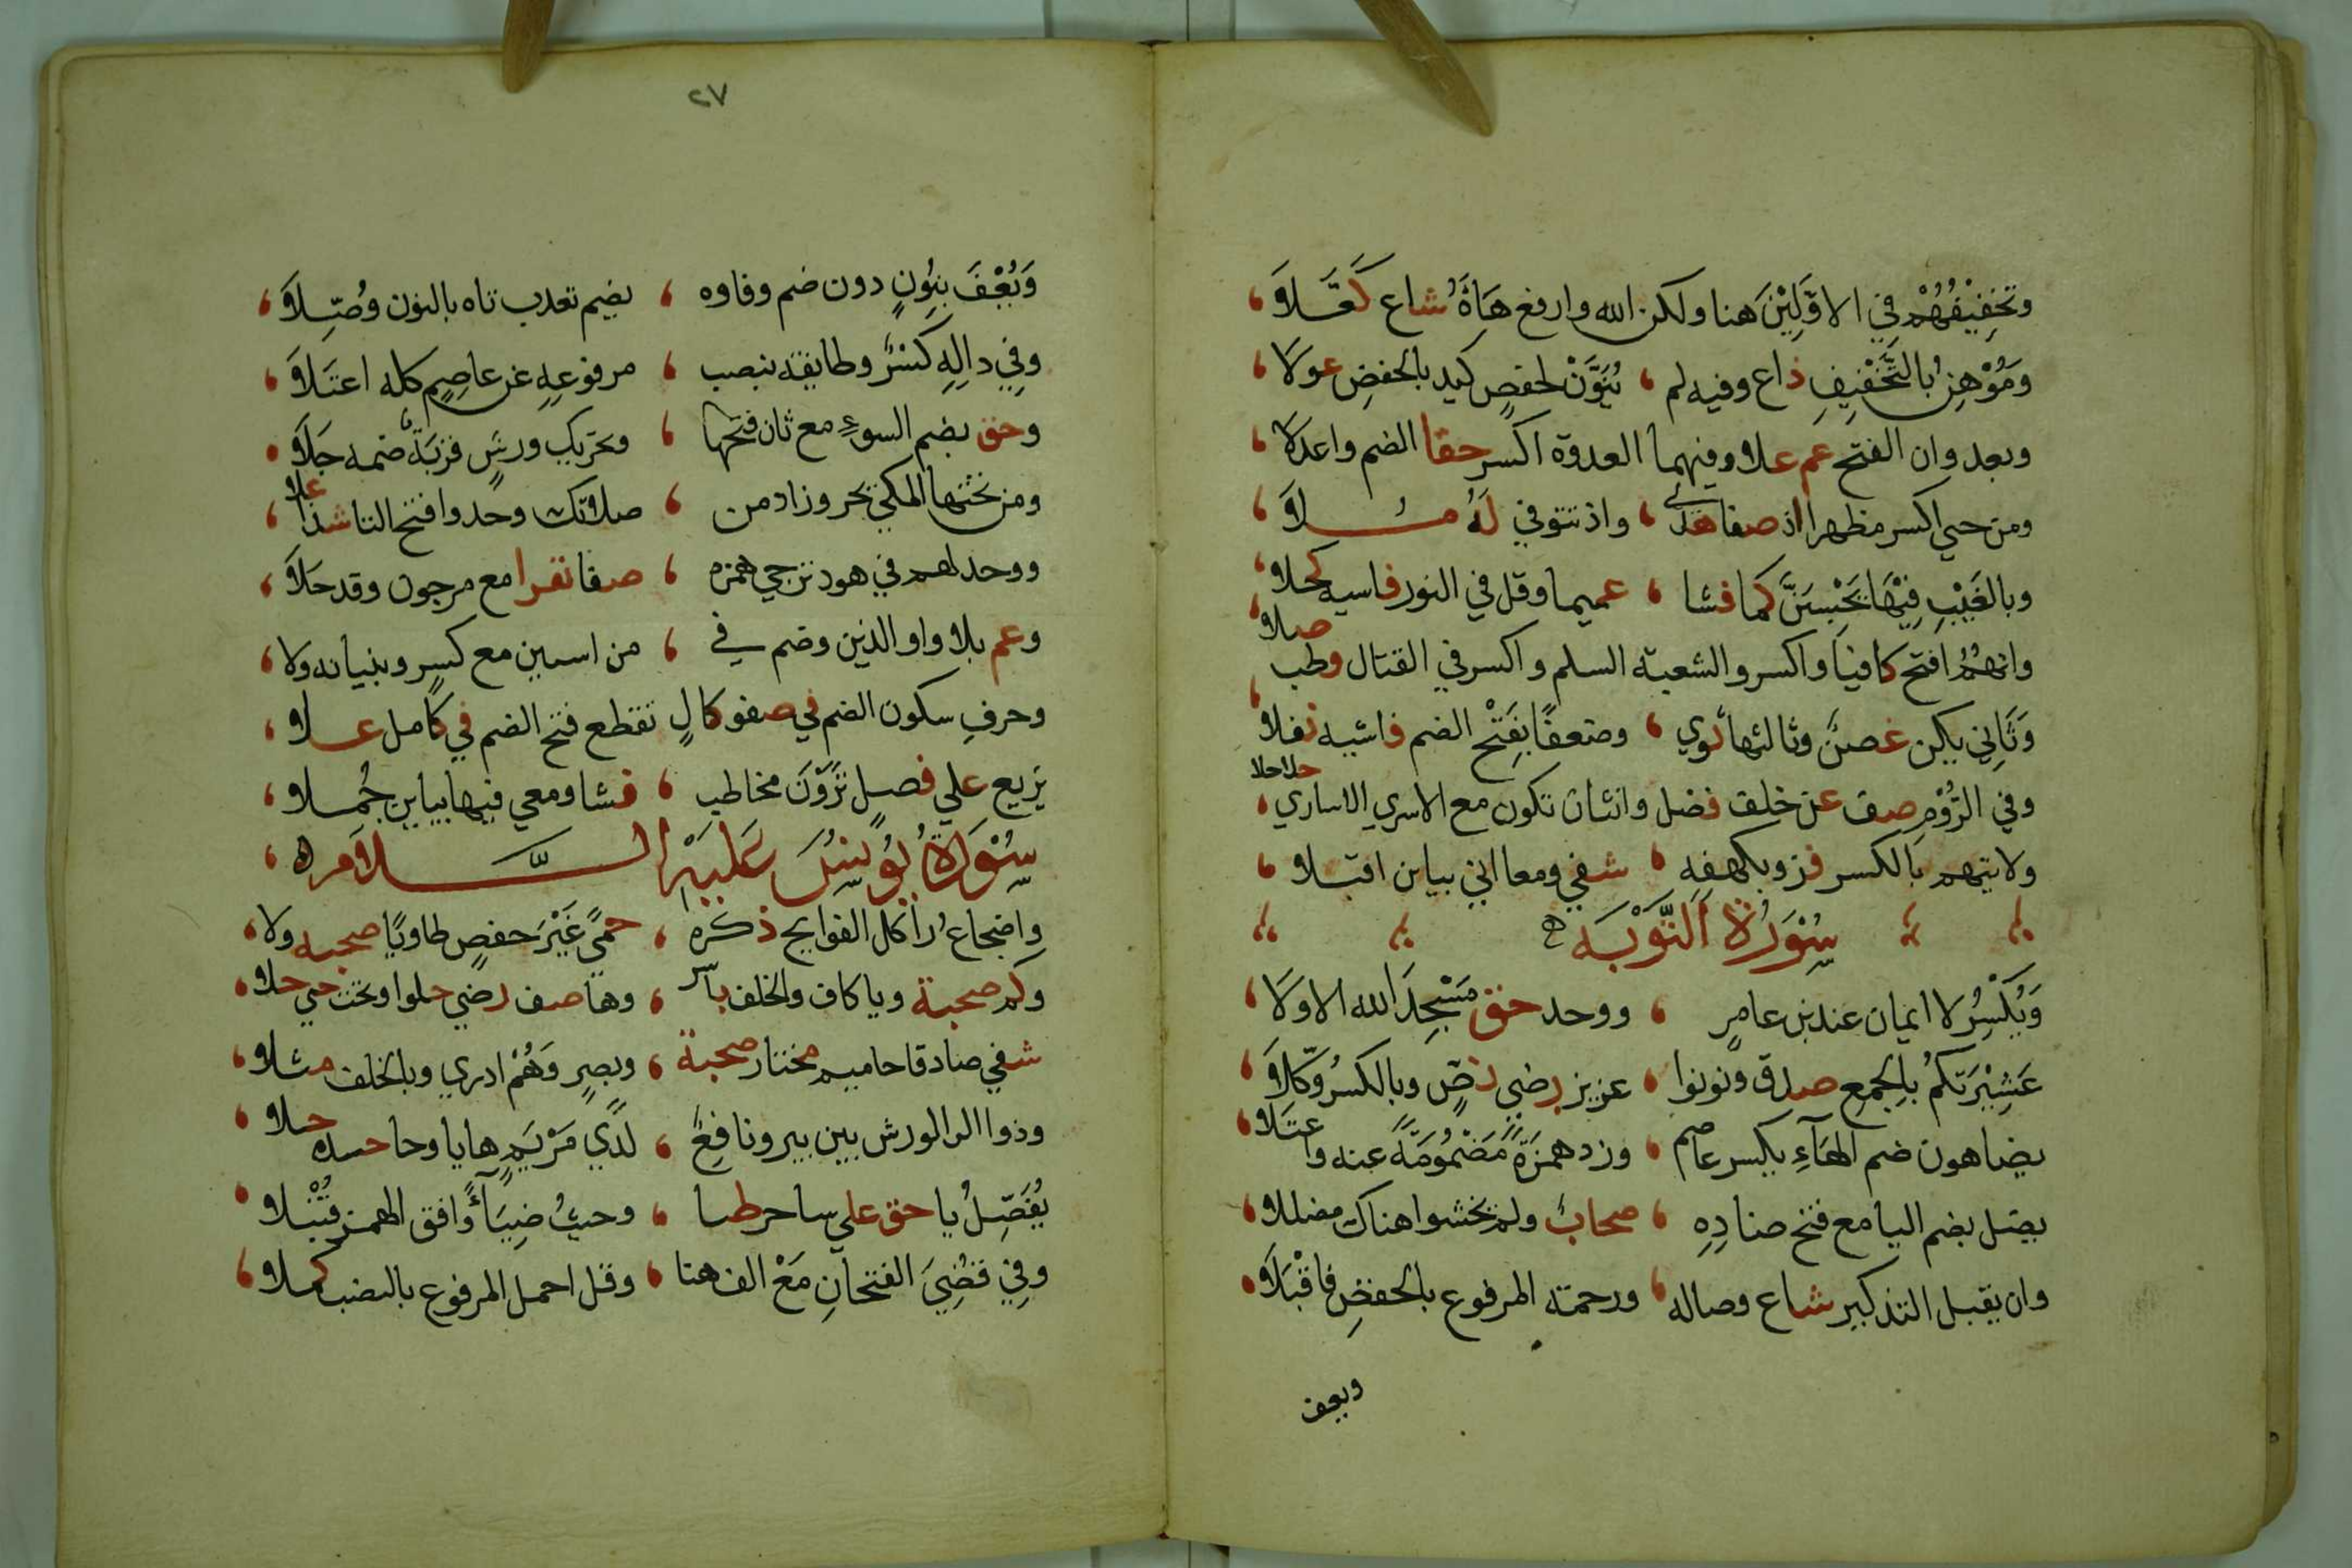 وتخفيفهم في الاوّلين هنا ولكن الله وارفع هاؤه شاع كفّلا
وموهن بالتخفيف ذاع وفيه لم ، ينوّن لحفص كيد بالخفض عولا
وبعد وان الفتح عم علا وفيهما العدوة اكسر حقا الضم واعدلا
ومن حيي اكسر مظهرا اذ صفا هدى ، واذ تتوفي له ملا
وبالغيب فيها يحسبن كما فشا ، عميما وقل في النور فاسيه كحلا
وانهم افتح كافيا واكسروا لشعبة السلم واكسر في القتال وطب صلا
وثاني يكن غصن وثالثها ثوي ، وضعفا بفتح الضم فاشيه نفلا
وفي الروم صف عن خلف فضل وانثان تكون مع الاسري الاساري حلا حلا
ولايتهم بالكسر فز وبكهفه ، شفي ومعا اني بياين اقبلا
سورة التوبة
ويكسر لا ايمان عند بن عامر ، ووحد حق مسجد الله الاولا
عشيرتكم بالجمع صدق ونونوا ، عزيز رضي نص وبالكسر وكلا
يضاهون ضم الهاء يكسر عاصم ، وزد همزة مضمومة عنه واعتلا
يضل بضم اليا مع فتح ضاده ، صحاب ولم يخشوا هناك مضللا
وان يقبل التذكير شاع وصاله ، ورحمة المرفوع بالخفض فاقبلا
ويعف
٢٧
ويعف بنون دون ضم وفاوه ، يضم تعذب تاه بالنون وصّلا
وفي داله كسر وطايفة بنصب ، مرفوعه عن عاصم كله اعتلا
وحق بضم السوء مع ثان فتحها ، وتحريك ورش قربة ضمه جلا
ومن تحتها المكي يجر وزاد من ، صلاتك وحد وافتح التا شذا علا
ووحد لهم في هود ترجي همزه ، صفا نفرا مع مرجون وقد حلا
وعم بلا واو الذين وضم في ، من اسس مع كسر وبنيانه ولا
وحرف سكون الضم في صفو كامل تقطع فتح الضم في كامل علا
يزيغ علي فصل ترون مخاطب ، فشا ومعي فيها بياين جملا
سورة يونس عليه السلام
واضجاع را كل الفواتح ذكره ، حمي غير حفص طاويا صحبة ولا
وكم صحبة ويا كاف والخلف ياسر ، وها صف رضي حلوا وتحت جني حلا
شفي صادقا حاميم مختار صحبة ، وبصر وهم ادري وبالخلف مثلا
وذوا الرا لورش بين بين ونافع ، لدي مريم هايا وحا حيده حلا
يفصل يا حق علي ساحر ظبا ، وحيث ضياء وافق الهمز قنبلا
وفي قضي الفتحان مع الف هنا ، وقل اجل المرفوع بالنصب كملا